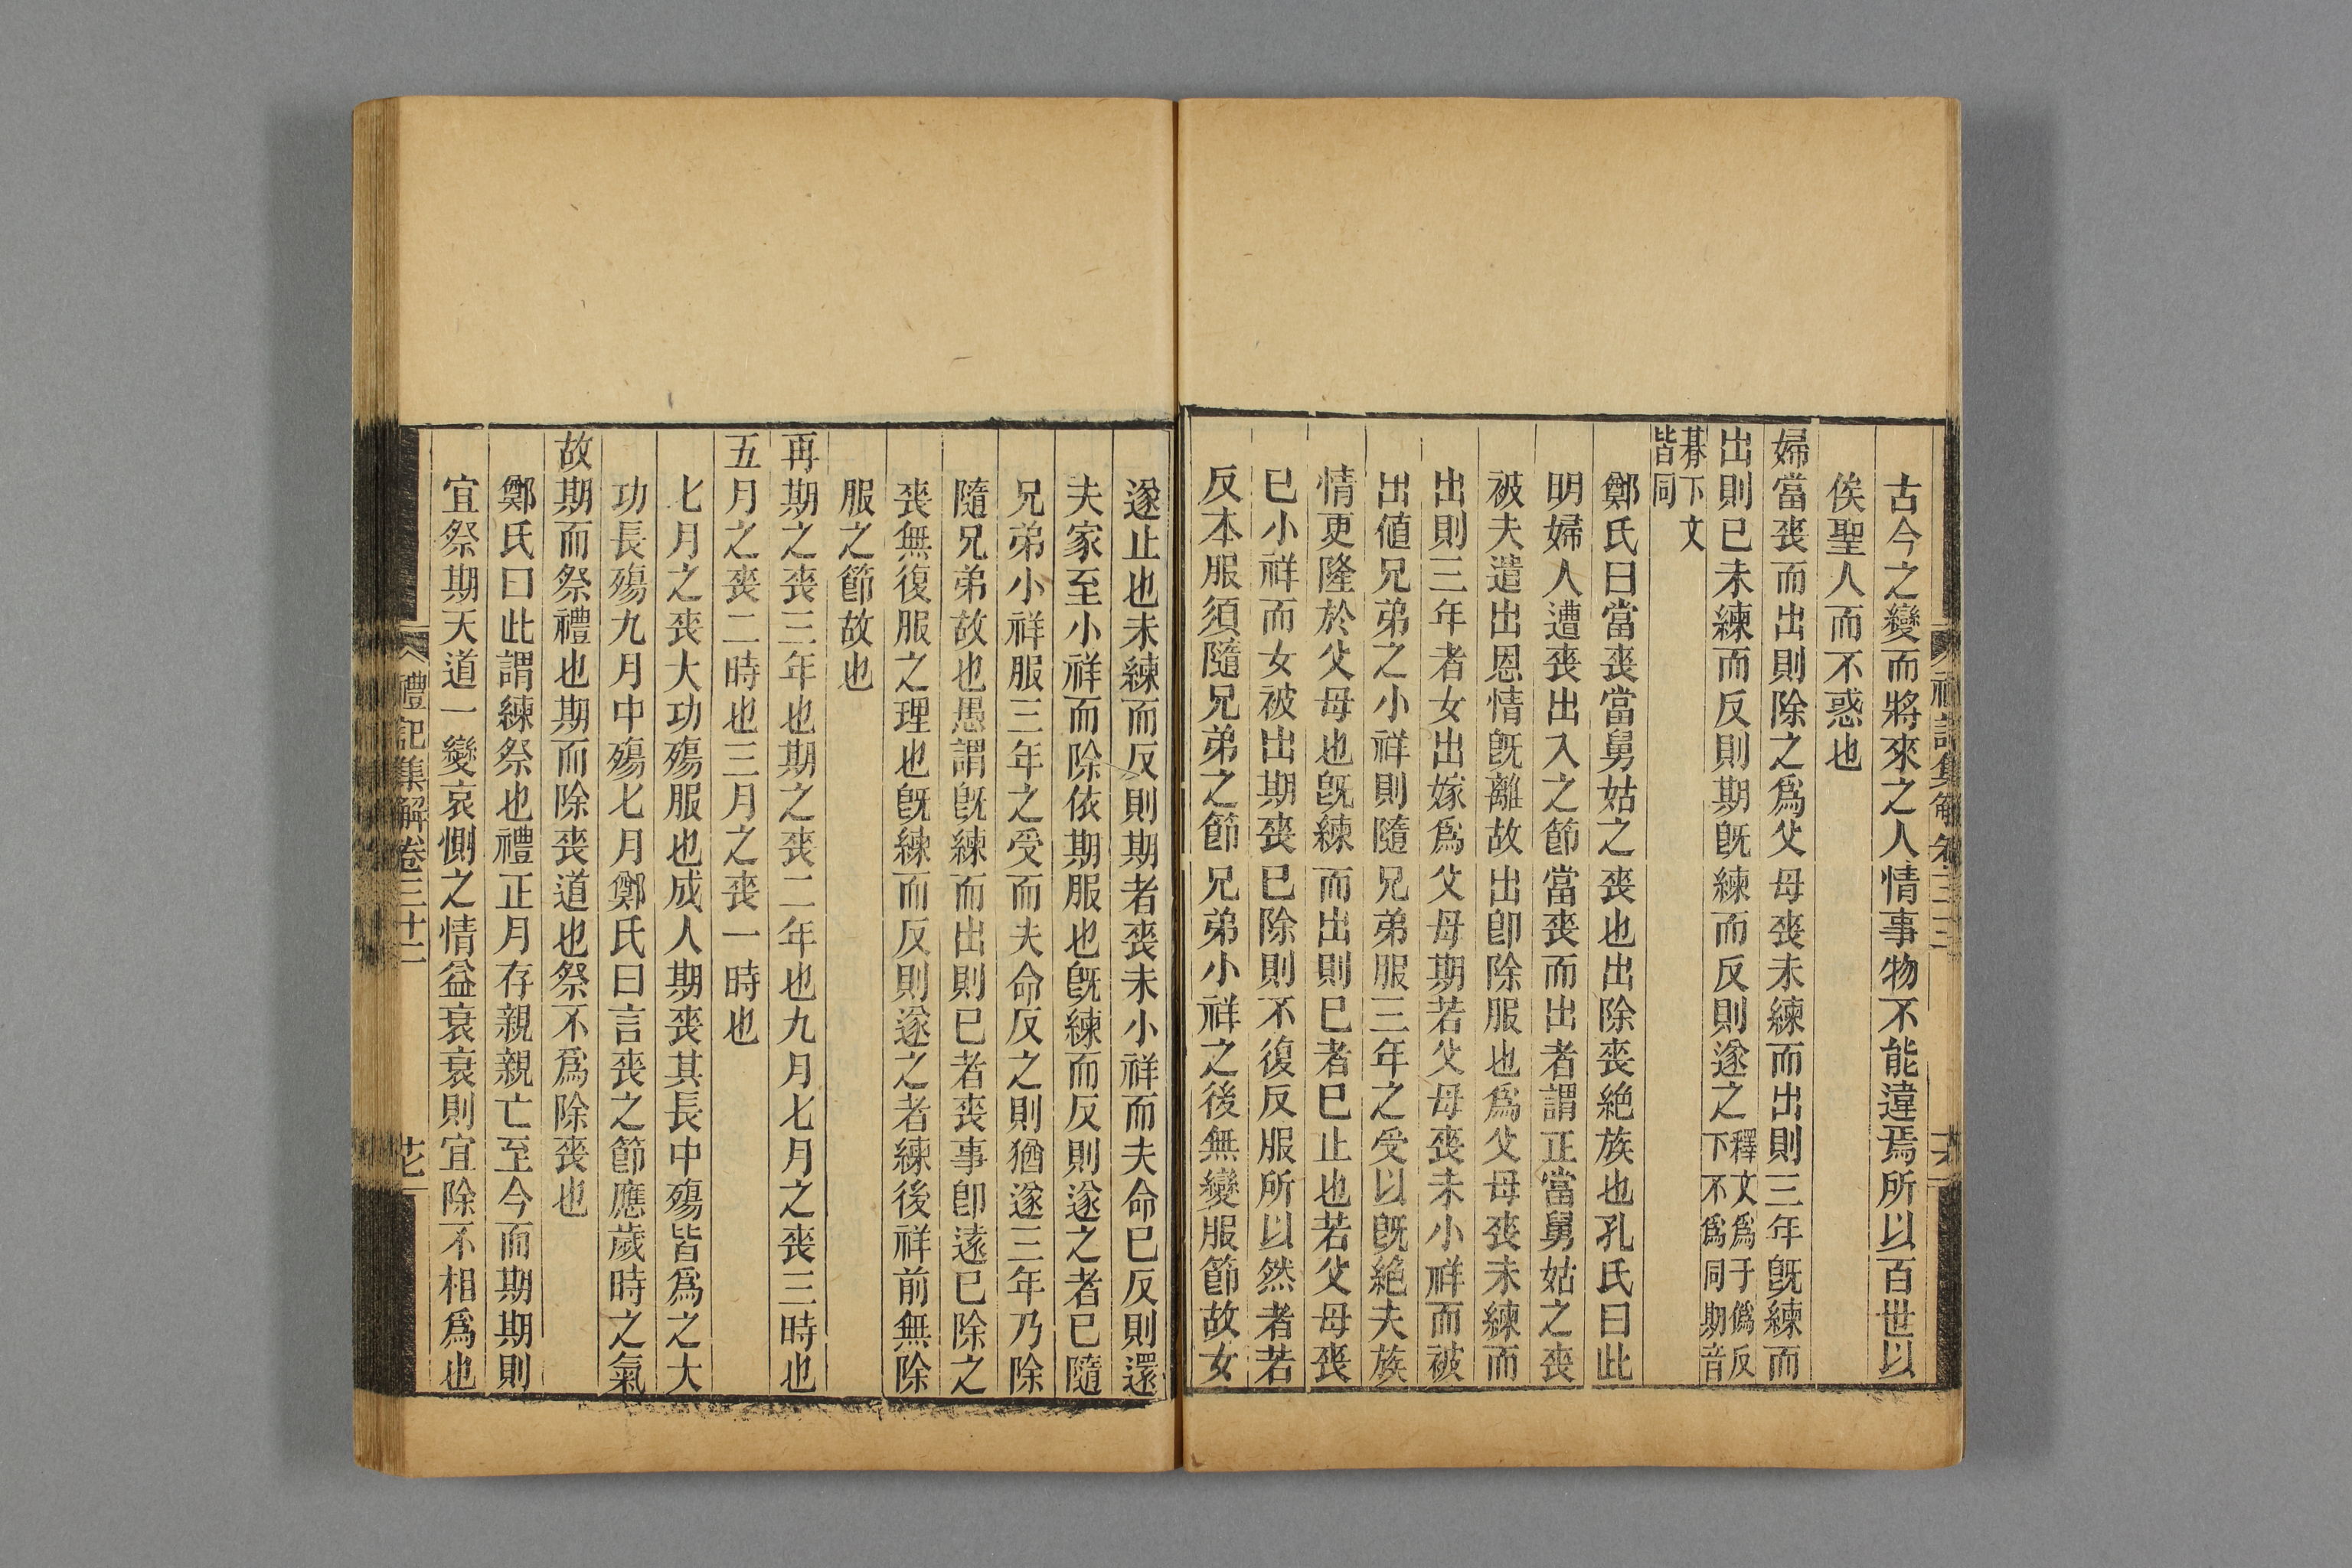 古今之變而將來之人情事物不能違焉所以百世以
俟聖人而不惑也
婦當喪而出則除之爲父母喪未練而出則三年旣練而
出則已未練而反則期旣練而反則遂之釋文爲于僞反下不爲同期音
朞下文皆同
鄭氏曰當喪當舅姑之喪也出除喪絶族也孔氏曰此
明婦人遭喪出入之節當喪而出者謂正當舅姑之喪
被夫遣出恩情旣離故出卽除服也爲父母喪未練而
出則三年者女出嫁爲父母期若父母喪未小祥而被
出値兄弟之小祥則隨兄弟服三年之受以旣絶夫族
情更隆於父母也旣練而出則已者已止也若父母喪
已小祥而女被出期喪已除則不復反服所以然者若
反本服須隨兄弟之節兄弟小祥之後無變服節故女
遂止也未練而反則期者喪未小祥而夫命已反則還
夫家至小祥而除依期服也旣練而反則遂之者已隨
兄弟小祥服三年之受而夫命反之則猶遂三年乃除
隨兄弟故也愚謂旣練而出則已者喪事卽遠已除之
喪無復服之理也旣練而反則遂之者練後祥前無除
服之節故也
再期之喪三年也期之喪二年也九月七月之喪三時也
五月之喪二時也三月之喪一時也
七月之喪大功殤服也成人期喪其長中殤皆爲之大
功長殤九月中殤七月鄭氏曰言喪之節應歲時之氣
故期而祭禮也期而除喪道也祭不爲除喪也
鄭氏曰此謂練祭也禮正月存親親亡至今而期期則
宜祭期天道一變哀惻之情益衰衰則宜除不相爲也
禮記集解卷三十二